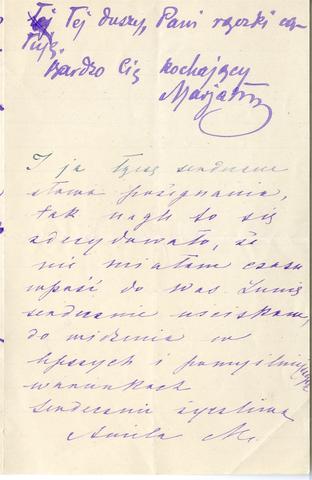 Tej duszy, Pani rączki ca-
łuję.
Bardzo Cię kochający
Marjan
I ja łączę serdeczne
słowa pożegnania,
tak nagle to się
zdecydowało, że
nie miałam czasu
wpaść do Was
serdecznie uściskam,
do widzenia w
lepszych i pomyślniejszych
warunkach
Serdecznie życzliwa
Aniela M.